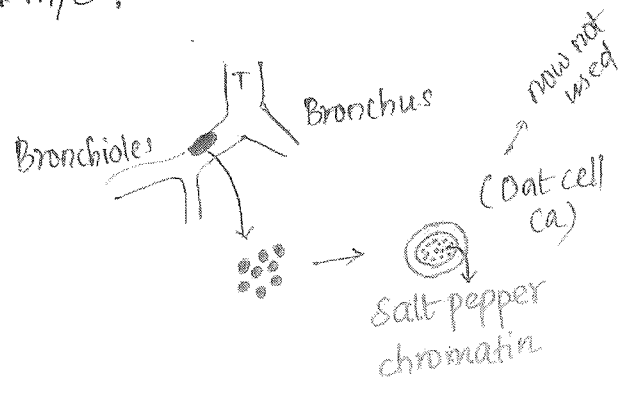 T
Bronchus
Bronchioles
now not
used
(Oat cell
ca)
Salt-pepper
chromatin